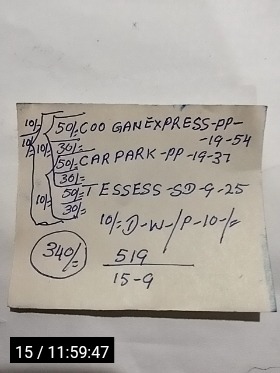 10/- 50/- COO GANEXPRESS-PP-
-19-54
10/- 10/- 30/-
50/- CAR PARK-PP-19-37
30/-
50/- T ESSESS-SD-9-25
10/- 30/-
10/- D-W-/P-10-/=
340/- 519
15-9
15 / 11:59:47